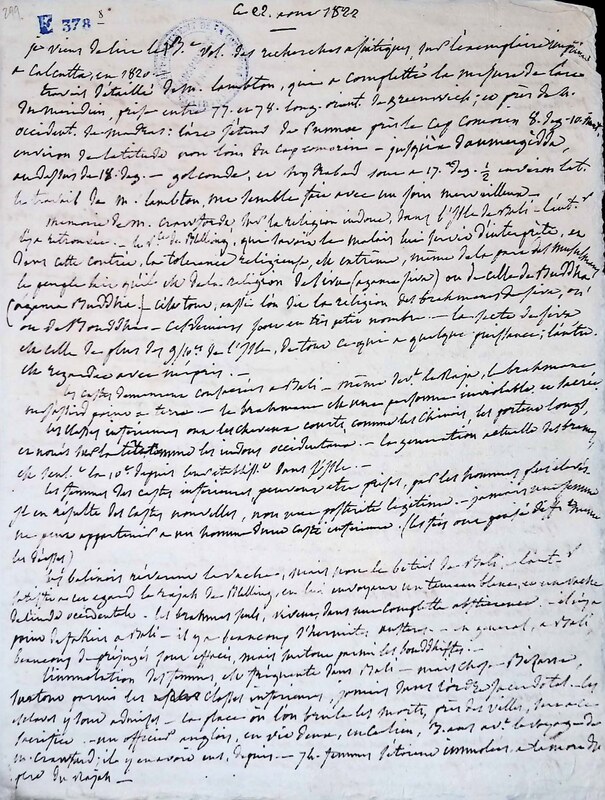 299
E 378 8
ce 22. aout 1822
je viens de lire le 13e vol. des recherches asiatiques, sur l'exemplaire
a Calcutta, en 1820.
travail détaillé de m. lambton, qui a complétté la mesure de l'arc
du méridien, pris entre 77. et 78. long. orient. de greenwich; et près de
occident. de madras: l'arc s'étend de près le Cap Comorin 8. deg. 10.
environ de latitude non loin du cap comorin - jusqu'à daumergidda,
au dessus de 18. deg. - golconde, et hydrabad sont a 17. deg. ½ environ lat.
le travail de m. lambton, me semble fait avec un soin merveilleux. -
mémoire de m. crawford, sur la religion indoue, dans l'isle de Bali - l'aut.r
l'y a retrouvée. - le de Blelling, qui savoit le malais lui servit d'interprète, et
dans cette contrée, la tolérance religieuse, est extrême, même de la part des musulmans
le peuple dit qu'il est de la religion de siva (agama siva) ou de celle de Buddha
(agama Buddha) - c'est tout, enfin l'on dit la religion des brahmans de siva, ou
ou de Bouddha - ces derniers sont en très petit nombre. - la secte de siva
est celle de plus des 9/10es de l'isle, de tout ce qui a quelque puissance; l'autre
est regardée avec mépris. -
les castes demeurent conservées a Bali - même devt le Raja, le brahmane
ne s'assied point a terre - le brahmane est une personne inviolable et sacrée
les classes inferieures ont les cheveux courts, comme les Chinois, les portent longs,
et noués sur la tête comme les indous occidentaux. - la génération actuelle des brames
est seult la 10e depuis leur établisst dans l'isle. -
les femmes des castes inferieures, peuvent etre prises, par les hommes plus élevés
il en résulte des castes nouvelles, non une postérité légitime - jamais une femme
ne peut appartenir a un homme d'une caste inférieure.
les balinois révèrent la vache, mais non le betail de Bali. - l'aut.r
a cet egard le rajah de Blelling, en lui envoyant un taureau blanc, et une vache
de l'inde occidentale - les brahmes seuls, vivent dans une complette abstinence - il n'y a
point de fakirs a Bali - il y a beaucoup d'hermites austères - en général, a Bali
beaucoup de préjugés sont effacés, mais surtout parmi les bouddhistes. -
l'immolation des femmes, est fréquente dans Bali - mais chose bizarre,
surtout parmi les classes inferieures, jamais dans l'ordre sacerdotal - les
esclaves y sont admises - la place où l'on brule les morts, près des villes, sert a ce
sacrifice - un officier anglois, en vit deux, en ce lieu, 3. ans avt le voyage de
m. Crawford; il y en avoit eu, depuis - 74. femmes s'étoient immolées a la mort du
père du rajah -